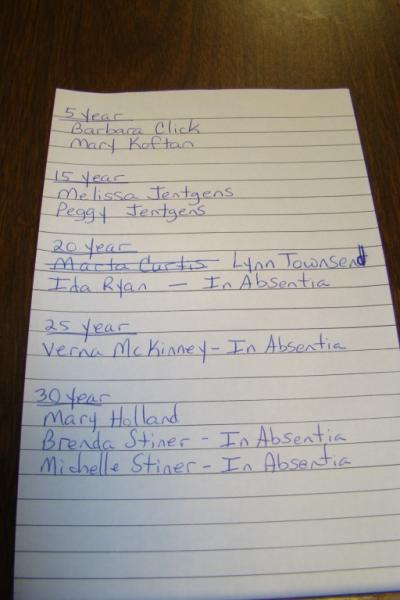 5 year
Barbara Click
Mary Koftan
15 year
Melissa Jentgens
Peggy Jentgens
20 year
Marta Curtis Lynn Townsend
Ida Ryan — In Absentia
25 year
Verna McKinney - In Absentia
30 year
Mary Holland
Brenda Stiner - In Absentia
Michelle Stiner - In Absentia